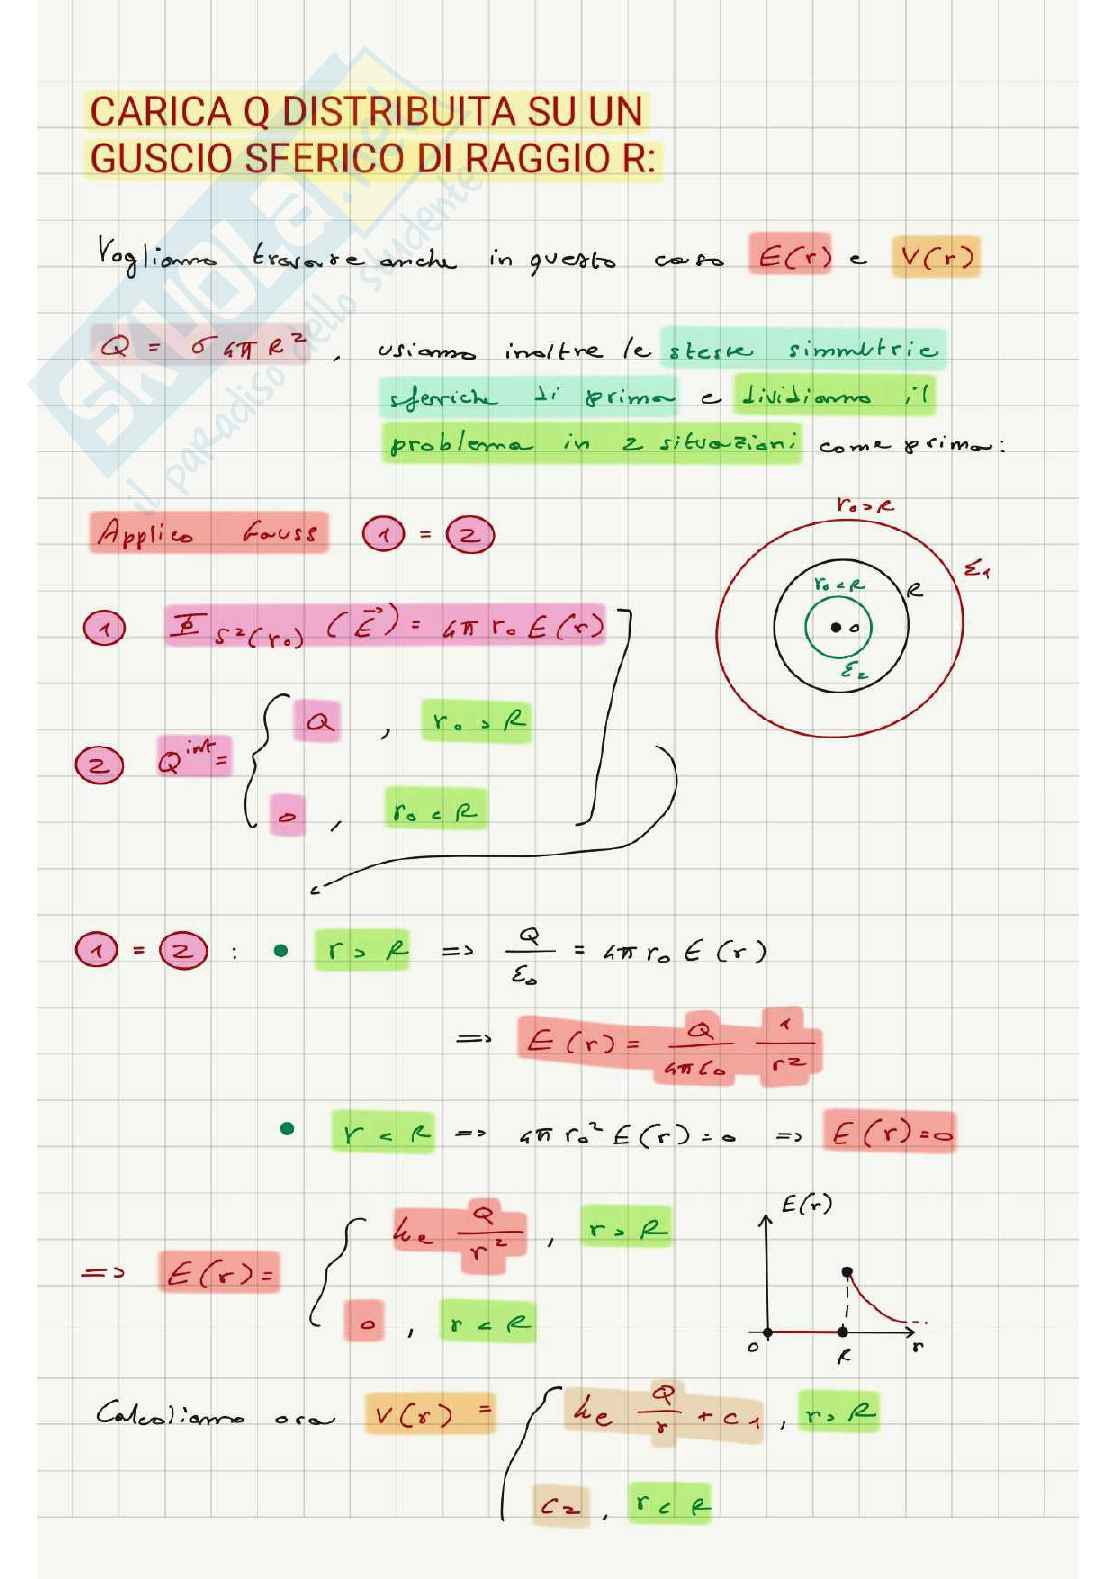 CARICA Q DISTRIBUITA SU UN
GUSCIO SFERICO DI RAGGIO R:
SKUOLA.net
il paradiso dello studente
Vogliamo trovare anche in questo caso E(r) e V(r)
Q = σ 4π R², usiamo inoltre le stesse simmetrie
sferiche di prima e dividiamo il
problema in 2 situazioni come prima:
Applico Gauss 1 = 2
r₀ > R
Σ₁
R
r₀ < R
0
Σ₂
1 Φ S²(r₀) (E⃗) = 4π r₀ E(r)
2 Q^int = { Q , r₀ > R
0 , r₀ < R
1 = 2 : • r > R => Q/ε₀ = 4π r₀ E(r)
=> E(r) = Q/4πε₀ 1/r²
• r < R => 4π r₀² E(r) = 0 => E(r) = 0
=> E(r) = { ke Q/r² , r > R
0 , r < R
E(r)
0 R r
Calcoliamo ora V(r) = { ke Q/r + c₁ , r > R
c₂ , r < R